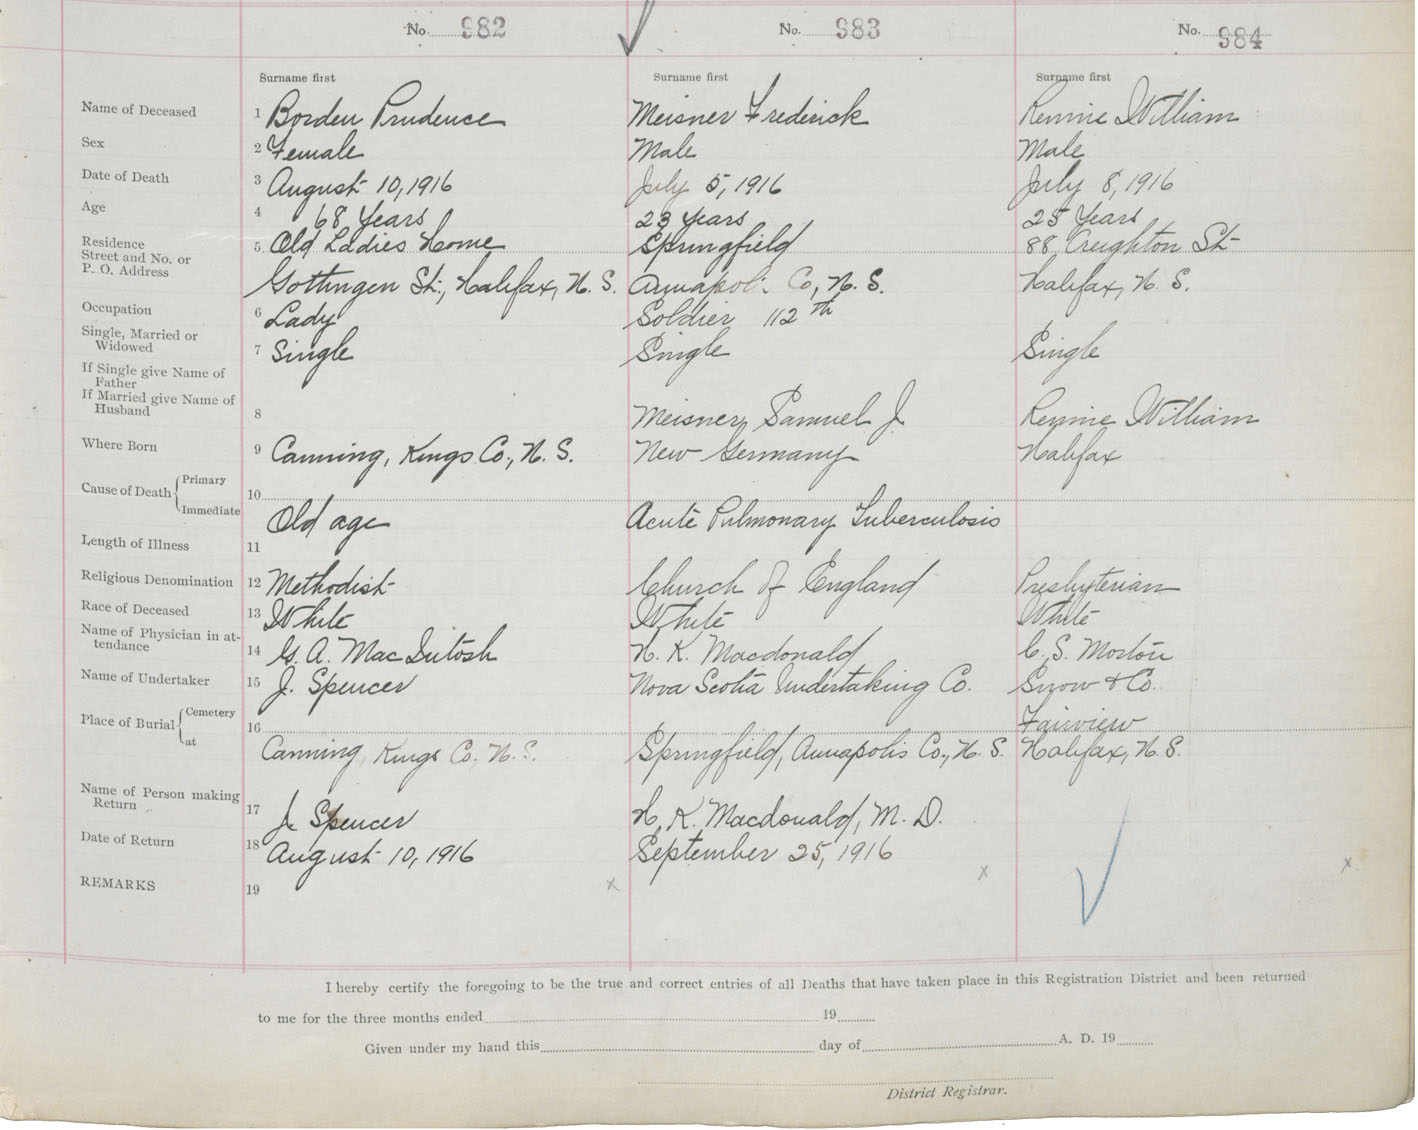 No. 982 No. 983 No. 984
Surname first Surname first Surname first
Name of Deceased 1 Borden Prudence Meisner Frederick Rennie William
Sex 2 Female Male Male
Date of Death 3 August 10, 1916 July 5, 1916 July 8, 1916
Age 4 68 Years 23 Years 25 Years
Residence 5 Old Ladies Home Springfield 88 Creighton St
Street and No. or
P. O. Address Gottingen St., Halifax, N. S. Annapolis Co, N. S. Halifax, N. S.
Occupation 6 Lady Soldier 112th
Single, Married or
Widowed 7 Single Single Single
If Single give Name of
Father
If Married give Name of
Husband 8 Meisner, Samuel J. Rennie William
Where Born 9 Canning, Kings Co., N. S. New Germany Halifax
Cause of Death Primary 10
Immediate Old age Acute Pulmonary Tuberculosis
Length of Illness 11
Religious Denomination 12 Methodist Church of England Presbyterian
Race of Deceased 13 White White White
Name of Physician in at-
tendance 14 G. A. MacIntosh H. K. Macdonald C. S. Morton
Name of Undertaker 15 J. Spencer Nova Scotia Undertaking Co. Snow & Co.
Place of Burial Cemetery 16 Fairview
at Canning, Kings Co, N. S. Springfield, Annapolis Co., N. S. Halifax, N. S.
Name of Person making
Return 17 J. Spencer H. K. Macdonald, M. D.
Date of Return 18 August 10, 1916 September 25, 1916
REMARKS 19 x x x
I hereby certify the foregoing to be the true and correct entries of all Deaths that have taken place in this Registration District and been returned
to me for the three months ended 19
Given under my hand this day of A. D. 19
District Registrar.